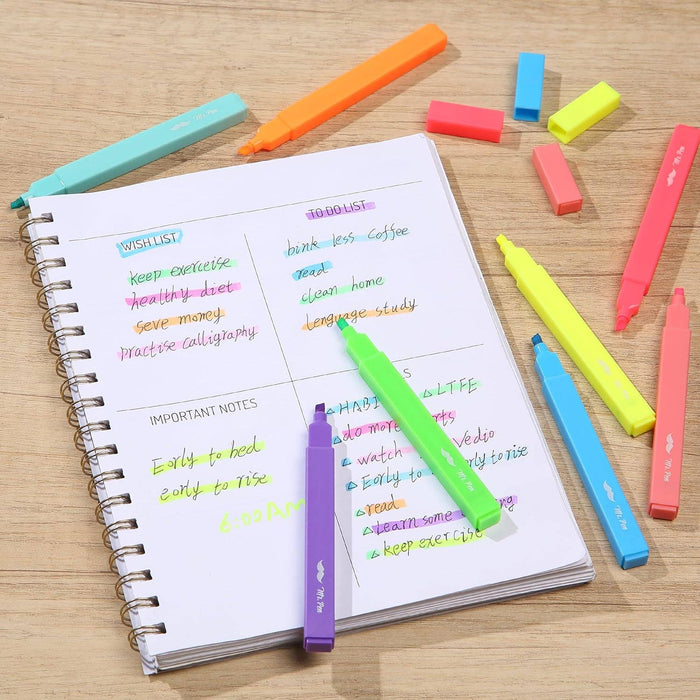 Mr. Pen
WISH LIST
Keep exerceise
healthy diet
seve money
practise calligraphy
TO DO LIST
bink less coffee
read
clean home
lenguage study
IMPORTANT NOTES
Early to bed
early to rise
6:00 AM
S
HABI
LTFE
do more rts
watch Vedio
Early to early to rise
read
Learn some ng
keep exercise
Mr. Pen
Mr. Pen
Mr. Pen
Mr. Pen
Mr. Pen
Mr. Pen